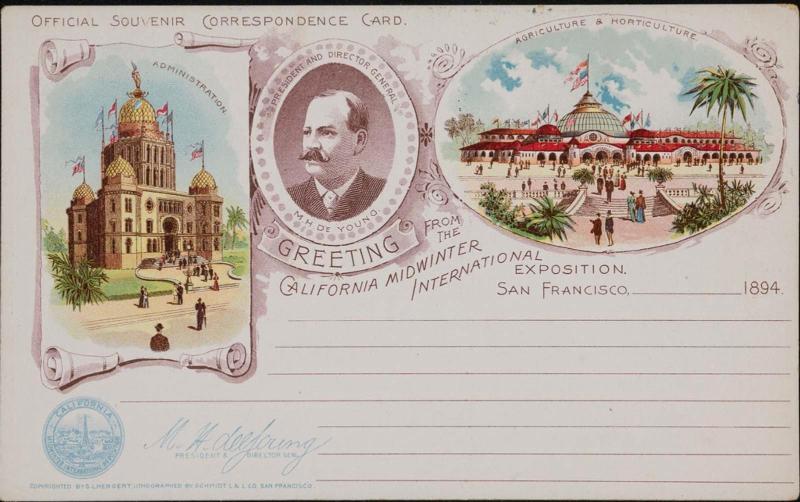 OFFICIAL SOUVENIR CORRESPONDENCE CARD.
ADMINISTRATION.
PRESIDENT AND DIRECTOR GENERAL
M.H. DE YOUNG.
AGRICULTURE & HORTICULTURE.
GREETING
FROM
THE
CALIFORNIA MIDWINTER
INTERNATIONAL
EXPOSITION.
SAN FRANCISCO, 1894.
CALIFORNIA
M. H. de Young
PRESIDENT & DIRECTOR GEN.
COPYRIGHTED BY S.L.HERGERT, LITHOGRAPHED BY SCHMIDT L & L CO. SAN FRANCISCO.